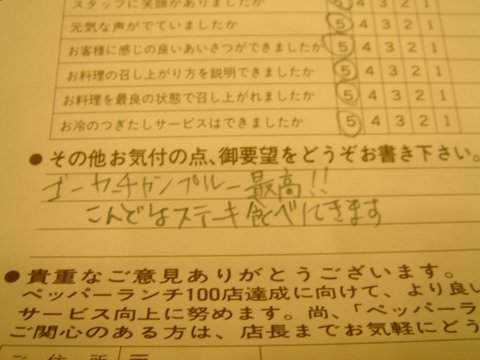 スタッフに笑顔がありましたか 5 4 3 2 1
元気な声がでていましたか 5 4 3 2 1
お客様に感じの良いあいさつができましたか 5 4 3 2 1
お料理の召し上がり方を説明できましたか 5 4 3 2 1
お料理を最良の状態で召し上がれましたか 5 4 3 2 1
お冷のつぎたしサービスはできましたか 5 4 3 2 1
●その他お気付の点、御要望をどうぞお書き下さい。
ゴーヤーチャンプルー最高!!
こんどはステーキ食べにきます
●貴重なご意見ありがとうございます。
ペッパーランチ100店達成に向けて、より良い
サービス向上に努めます。尚、「ペッパーラ
ご関心のある方は、店長までお気軽にどう
ご住所